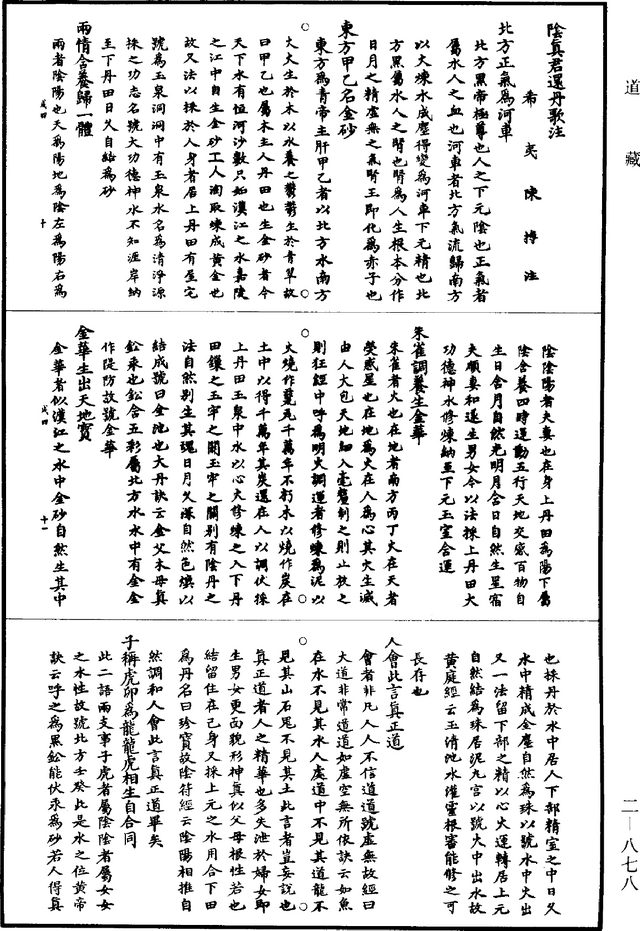 道藏
陰真君還丹歌注
希夷陳摶注
北方正氣為河車
北方黑帝極尊也人之下元陰也正氣者
屬水人之血也河車者北方氣流歸南方
以火煉水成塵得變為河車下元精也北
方黑屬水人之腎也腎為人生根本分作
日月之精虛無之氣腎王即化為赤子也
東方甲乙名金砂
東方為青帝主肝甲乙者以北方水南方
火火生於木以水養之鬱鬱生於青翠故
曰甲乙也屬木主人丹田也生金砂者今
天下水有恒河沙數只如漢江之水嘉陵
之江中自生金砂工人淘取煉成黃金也
故又法以採於人身者居上丹田有屋宅
號為玉泉洞洞中有玉泉水名為清淨源
採之功志名號大功德神水不知涯岸納
至下丹田日久自結為砂
兩情含養歸一體
兩者陰陽也天為陽地為陰左為陽右為
陰陰陽者夫真也在身上丹田為陽下屬
陰含養四時運動五行天地交感百物自
生日含月自然光明月含日自然生星宿
夫順妻和遂生男女令以法採上丹田大
功德神水修煉納至下元玉室合運
朱雀調養生金華
朱雀者火也在地者南方丙丁火在天者
熒惑星也在地為火在人為心其火生滅
由人大包天地細入毫釐制之則止放之
則狂經中呼為明火調運者修煉為泥以
火燒作甓瓦千萬年不朽木以燒作炭在
土中以得千萬年其炭還在人以調伏採
上丹田玉泉中水以心火修煉之入下丹
田鏁之玉牢之關玉牢之關別有陰丹之
法自然別生其魂日月久深自然色煥以
結成號曰金池也大丹訣云金父木母真
鉛汞也鉛合五彩屬北方水水中有金金
作隄防故號金華
金華生出天地寶
金華者似漢江之水中金砂自然生其中
也採丹於水中居人下部精室之中日又
水中精成金塵自然為珠以號水中火出
又一法留下部之精以心火運轉居上元
自然結為珠居泥丸宮以號火中出水故
黃庭經云玉清池水灌靈根審能修之可
長存也
人會此言真正道
會者非凡人人不信道道號虛無故經曰
大道非常道道如虛空無所依訣云如魚
在水不見其水人處道中不見其道龍不
見其山石䟽不見其土此言者豈妄說也
真正道者人之精華也多失泄於婦女即
生男女更面貌形神真似父母根性若也
結留住在己身又採上元之水用合下田
為丹名曰珍寶故陰符經云陰陽相推自
然調和人會此言真正道畢矣
子稱虎卯為龍龍虎相生自合同
此二語兩支事子虎者屬陰陰者屬女女
之水性故號北方壬癸此是水之位黃帝
訣云呼之為黑鉛能伏汞為砂若人得真
二－八七八